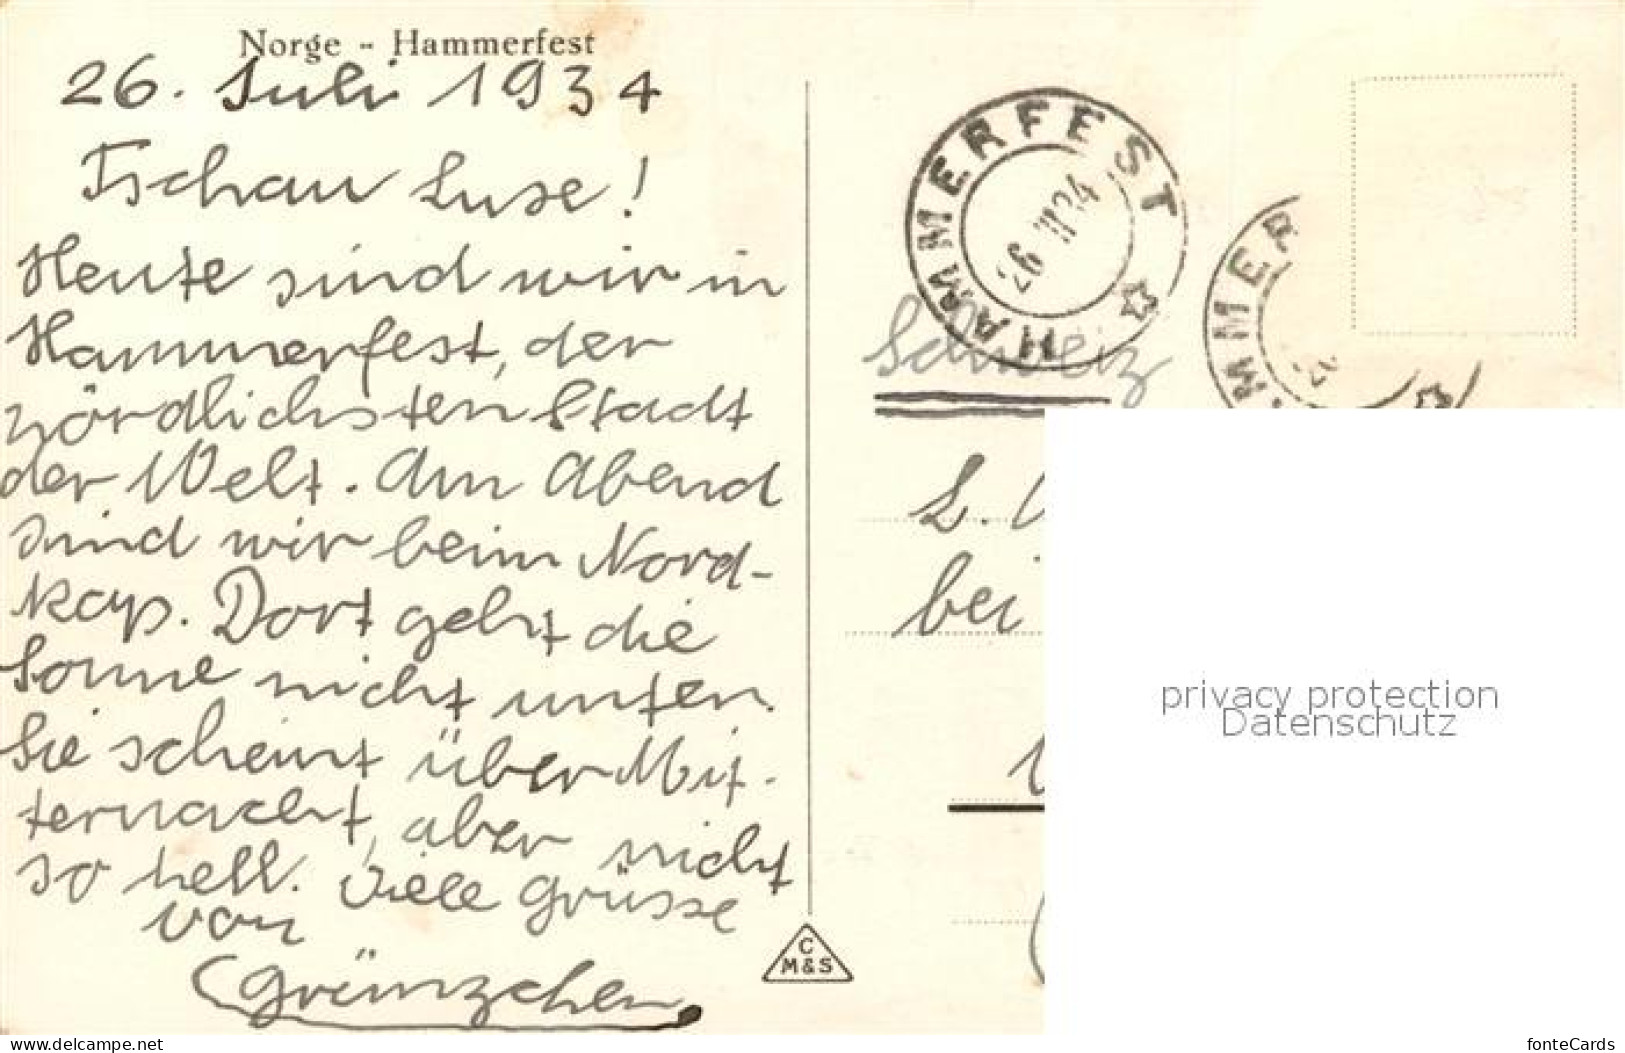 Norge - Hammerfest
26. Juli 1934
Tschau Luse!
Heute sind wir in
Hammerfest, der
nördlichsten Stadt
der Welt. Am Abend
sind wir beim Nord-
kap. Dort geht die
Sonne nicht unter.
Sie scheint über Mit-
ternacht, aber nicht
so hell. Viele Grüsse
von
C
M&S
HAMMERFEST
26 VII 34
MMER
Schweiz
L.
bei
privacy protection
Datenschutz
www.delcampe.net
fonteCards